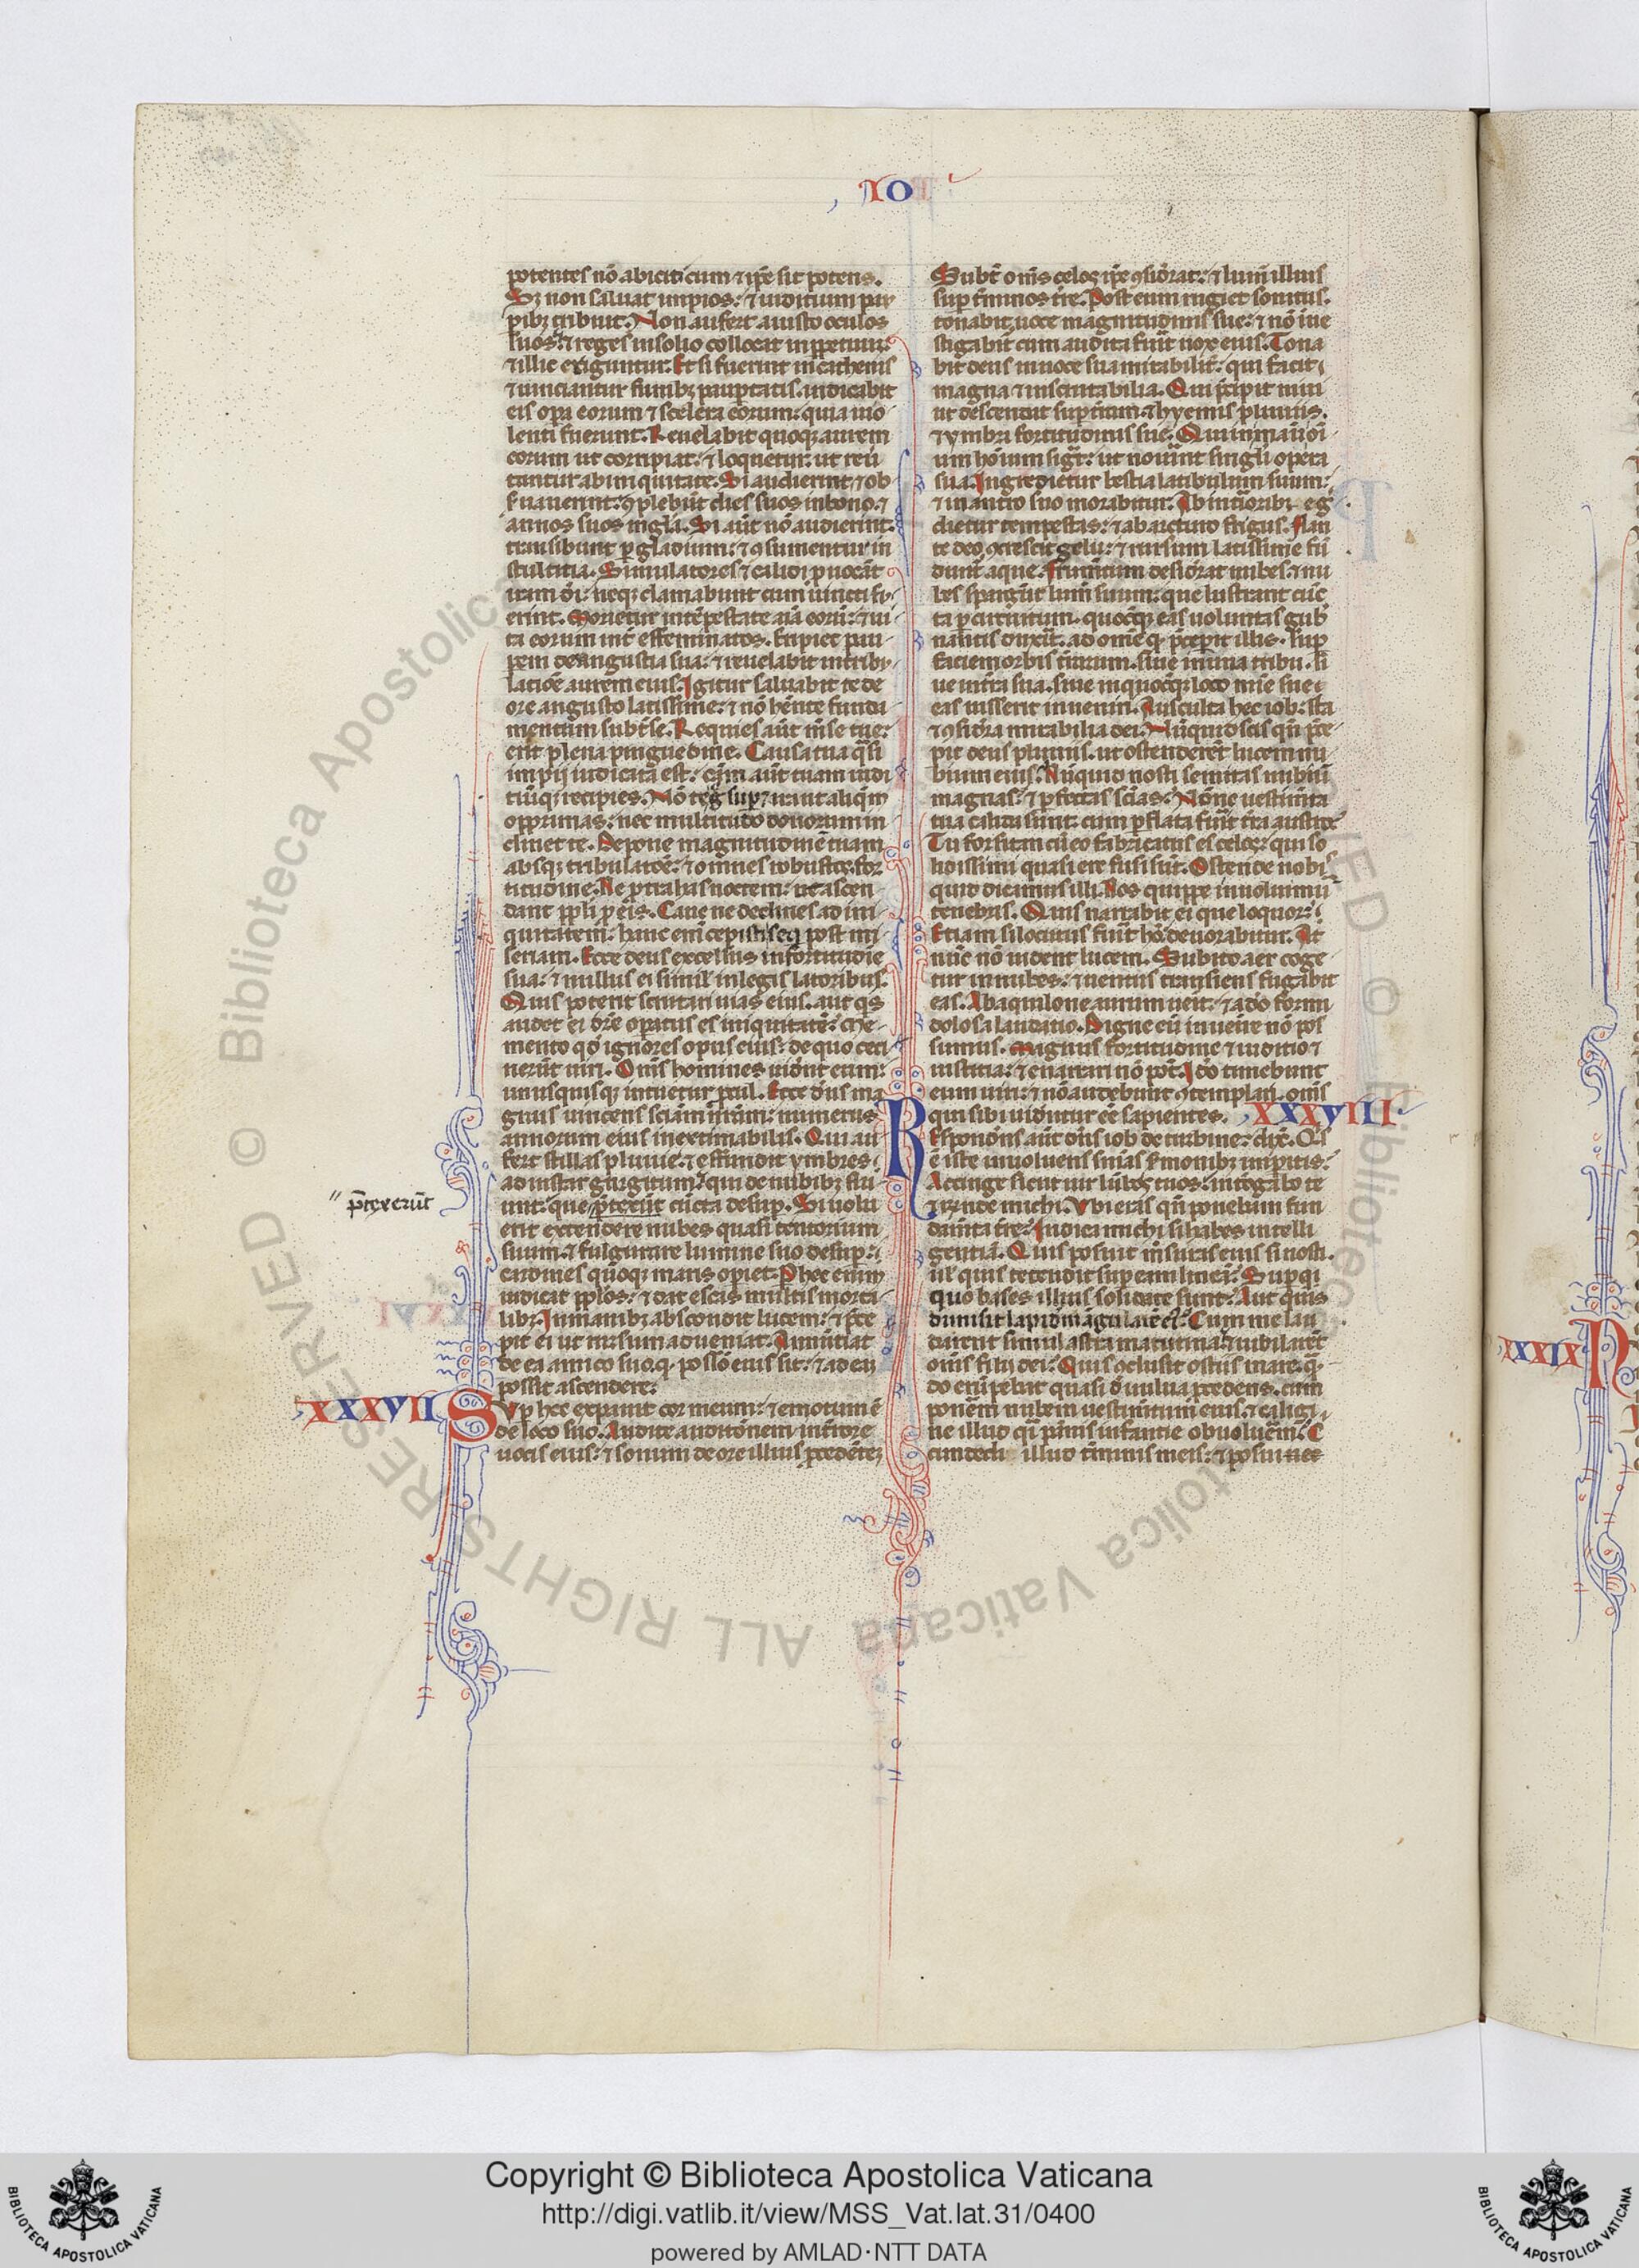 IO
potentes nō abiciti cum ⁊ ip̄e sit potens.
Sꝫ non saluat impios: ⁊ iuditium pau
pibꝫ tribuit. Non aufert a iusto oculos
suos: ⁊ reges in solio collocat in ꝑpetuū:
⁊ illic eriguntur. Et si fuerint in cathenis
⁊ uinciantur funibꝫ paupertatis. indicabit
eis oꝑa eorum ⁊ scelera eorum: quia uio
lenti fuerunt. Reuelabit quoqꝫ aurem
eorum ut corripiat: ⁊ loquetur: ut reū
tantur ab iniquitate. Si audierint ⁊ ob
seruauerint: ꝯplebūt dies suos in bono: ⁊
annos suos in gl̄a. Si aūt nō audierint:
transibunt ꝑ gladium: ⁊ ꝯsumentur in
stultitia. Simulatores ⁊ calidi ꝓuocāt
iram dī: neqꝫ clamabunt cum uincti fu
erint. Morietur in tēpestate aīa eorū: ⁊ ui
ta eorum int̄ effeminatos. Eripiet pau
perem de angustia sua: ⁊ reuelabit in tribu
latiōe aurem eius. Igitur saluabit te de
ore angusto latissime: ⁊ nō hēnte funda
mentum subt̄ se. Requies aūt mēse tue:
erit plena pinguedine. Causa tua q̄si
impij iudicata est: cām aūt tuam iudi
tiūqꝫ recipies. Nō te ḡ suꝑet ira ut aliq̄m
opprimas: nec multitudo donorum in
clinet te. Depone magnitudinē tuam
absqꝫ tribulatōe: ⁊ omnes robustos for
titudine. Ne ꝓtrahas noctem: ut ascen
dant ppl̄i ꝓ eis. Caue ne declines ad ini
quitatem: hanc enī cepisti seq̄ post mi
seriam. Ecce deus excelsus in fortitudīe
sua: ⁊ nullus ei simil̄ in legis latoribus.
Quis poterit scrutari uias eius. aut q̄s
audet ei dr̄e oꝑatus es iniquitatē: Me
mento qd̄ ignores opus eius: de quo ceci
nerūt uiri. Om̄s homines uidēt eum:
unusquisqꝫ intuetur ꝓcul. Ecce deus ma
gnus uincens sciām nr̄am: numerus
annorum eius inextimabilis. Qui au
fert stillas pluuie: ⁊ effundit ymbres
ad instar gurgitum: qui de nubibꝫ flu
unt: que p̄texūt cūcta desuꝑ. Si uolu
p̄texerūt
erit extendere nubes quasi tentorium
suum: ⁊ fulgurare lumine suo desuꝑ:
cardines quoqꝫ maris oꝑiet. Per hec enim
iudicat ppl̄os: ⁊ dat escas multis morta
libꝫ. In manibꝫ abscondit lucem: ⁊ p̄ce
pit ei ut rursum adueniat. Annuntiat
de ea amico suo. q̄ possō eius sit: ⁊ ad eā
possit ascendere:
XXXVII
Suꝑ hoc expauit cor meum: ⁊ emotum ē
de loco suo. Audite auditionem in t̄rore
uocis eius: ⁊ sonum de ore illius ꝓcedētē
Subt̄ om̄s celos ip̄e ꝯsid̄rat: ⁊ lum̄ illius
suꝑ t̄minos tr̄e. Post eum rugiet sonitus.
tonabit uoce magnitudinis sue: ⁊ nō inue
stigabit̄ cum audita fuit̄ uox eius. Tona
bit deus in uoce sua mirabilit̄: qui facit
magna ⁊ inscrutabilia. Qui p̄cipit niui
ut descendat suꝑ t̄ram: ⁊ hyemis pluuiis.
⁊ ymbri fortitudinis sue. Qui in manū oī
um hōīum sigt̄: ut nouīnt singli opera
sua. Ingredietur bestia latibulum suum:
⁊ in antro suo morabitur. Ab int̄iorabꝫ eg
dietur tempestas: ⁊ ab arcturo frigus. Flan
te deo ꝯcrescit gelu: ⁊ rursum latissime fū
dunt̄ aque. Frum̄tum desid̄rat nubes: ⁊ nu
bes sꝑargūt lum̄ suum: que lustrant cūc
ta ꝑ circuitum. quocūqꝫ eas uoluntas gub̄
nantis duxit̄. ad om̄e q̄ p̄cepit illis. suꝑ
faciem orbis t̄rarum. siue in una tribu. si
ue in tr̄a sua. siue in quocūqꝫ loco mīe sue
eas iusserit inueniri. Ausculta hec iob: sta
⁊ ꝯsid̄ra mirabilia dei. Nūquid scis qn̄ p̄ce
pit deus pluuiis. ut ostenderēt lucem nu
bium eius. Nūquid nosti semitas nubiū
magnas: ⁊ ꝑfectas scīas. Nōne uestim̄ta
tua calida sunt: cum ꝑflata fuīt tr̄a austro:
Tu forsitan cū eo fabricatus es celos: qui so
lidissimi quasi ere fusi sūt. Ostende nobis
quid dicamus illi. Nos quippe inuoluimur
tenebris. Quis narrabit ei que loquor:
Etiam si locutus fuit̄ hō deuorabitur. At
nūc nō uident lucem. Subito aer coge
tur in nubes: ⁊ uentus transiens fugabit
eas. Ab aquilone aurum uēit: ⁊ a deo formi
dolosa laudatio. Digne eū inuenire nō pos
sumus. magnus fortitudine ⁊ iuditio ⁊
iustitia: ⁊ enarrari nō pot̄. Ideo timebunt
eum uiri: ⁊ nō audebunt ꝯtemplari. om̄s
qui sibi uidentur eē sapientes.
XXXVIII
Respondens aūt dn̄s iob de turbine: dix̄. Qs̄
ē iste inuoluens sn̄ias sermonibꝫ imperitis:
Accinge sicut uir lūbos tuos: int̄rogabo te
⁊ r̄nde michi. Vbi eras qn̄ ponebam fun
dam̄ta tr̄e: Indica michi si habes intelli
gentiā. Quis posuit m̄suras eius si nosti.
ul̄ quis tetendit suꝑ eam lineā: Suꝑ q̄
quo bases illius solidate sunt: Aut quis
dimisit lapidem āgularē eiꝰ: Cum me lau
darent simul astra matutina: ⁊ iubilarēt
om̄s filij dei: Quis ꝯclusit ostiis mare: q̄n
do erūpebat quasi d̄ uulua ꝓcedens. cum
ponerem nubem uestim̄tum eius: ⁊ caligi
ne illud q̄i pānis infantie obuoluerem: C
cumdedi illud t̄minis meis: ⁊ posui uec
XXXIX
Copyright © Biblioteca Apostolica Vaticana
http://digi.vatlib.it/view/MSS_Vat.lat.31/0400
powered by AMLAD·NTT DATA
BIBLIOTECA APOSTOLICA VATICANA
BIBLIOTECA APOSTOLICA VATICANA